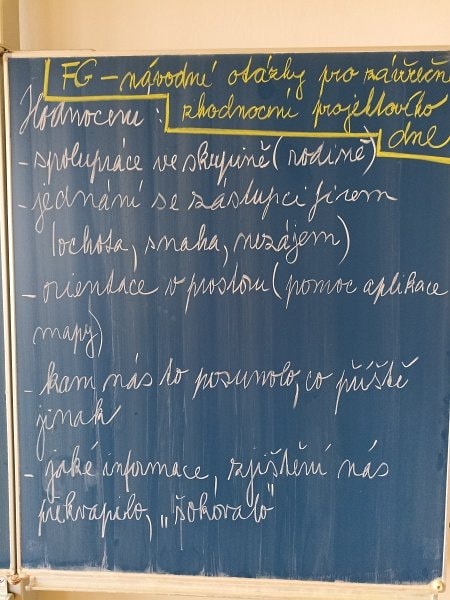 FG – návodné otázky pro závěrečné
zhodnocení projektového
dne
Hodnocení :
- spolupráce ve skupině (rodině)
- jednání se zástupci firem
(ochota, snaha, nezájem)
- orientace v prostoru (pomoc aplikace
mapy)
- kam nás to posunolo, co příště
jinak
- jaké informace, zjištění nás
překvapilo, „šokovalo"